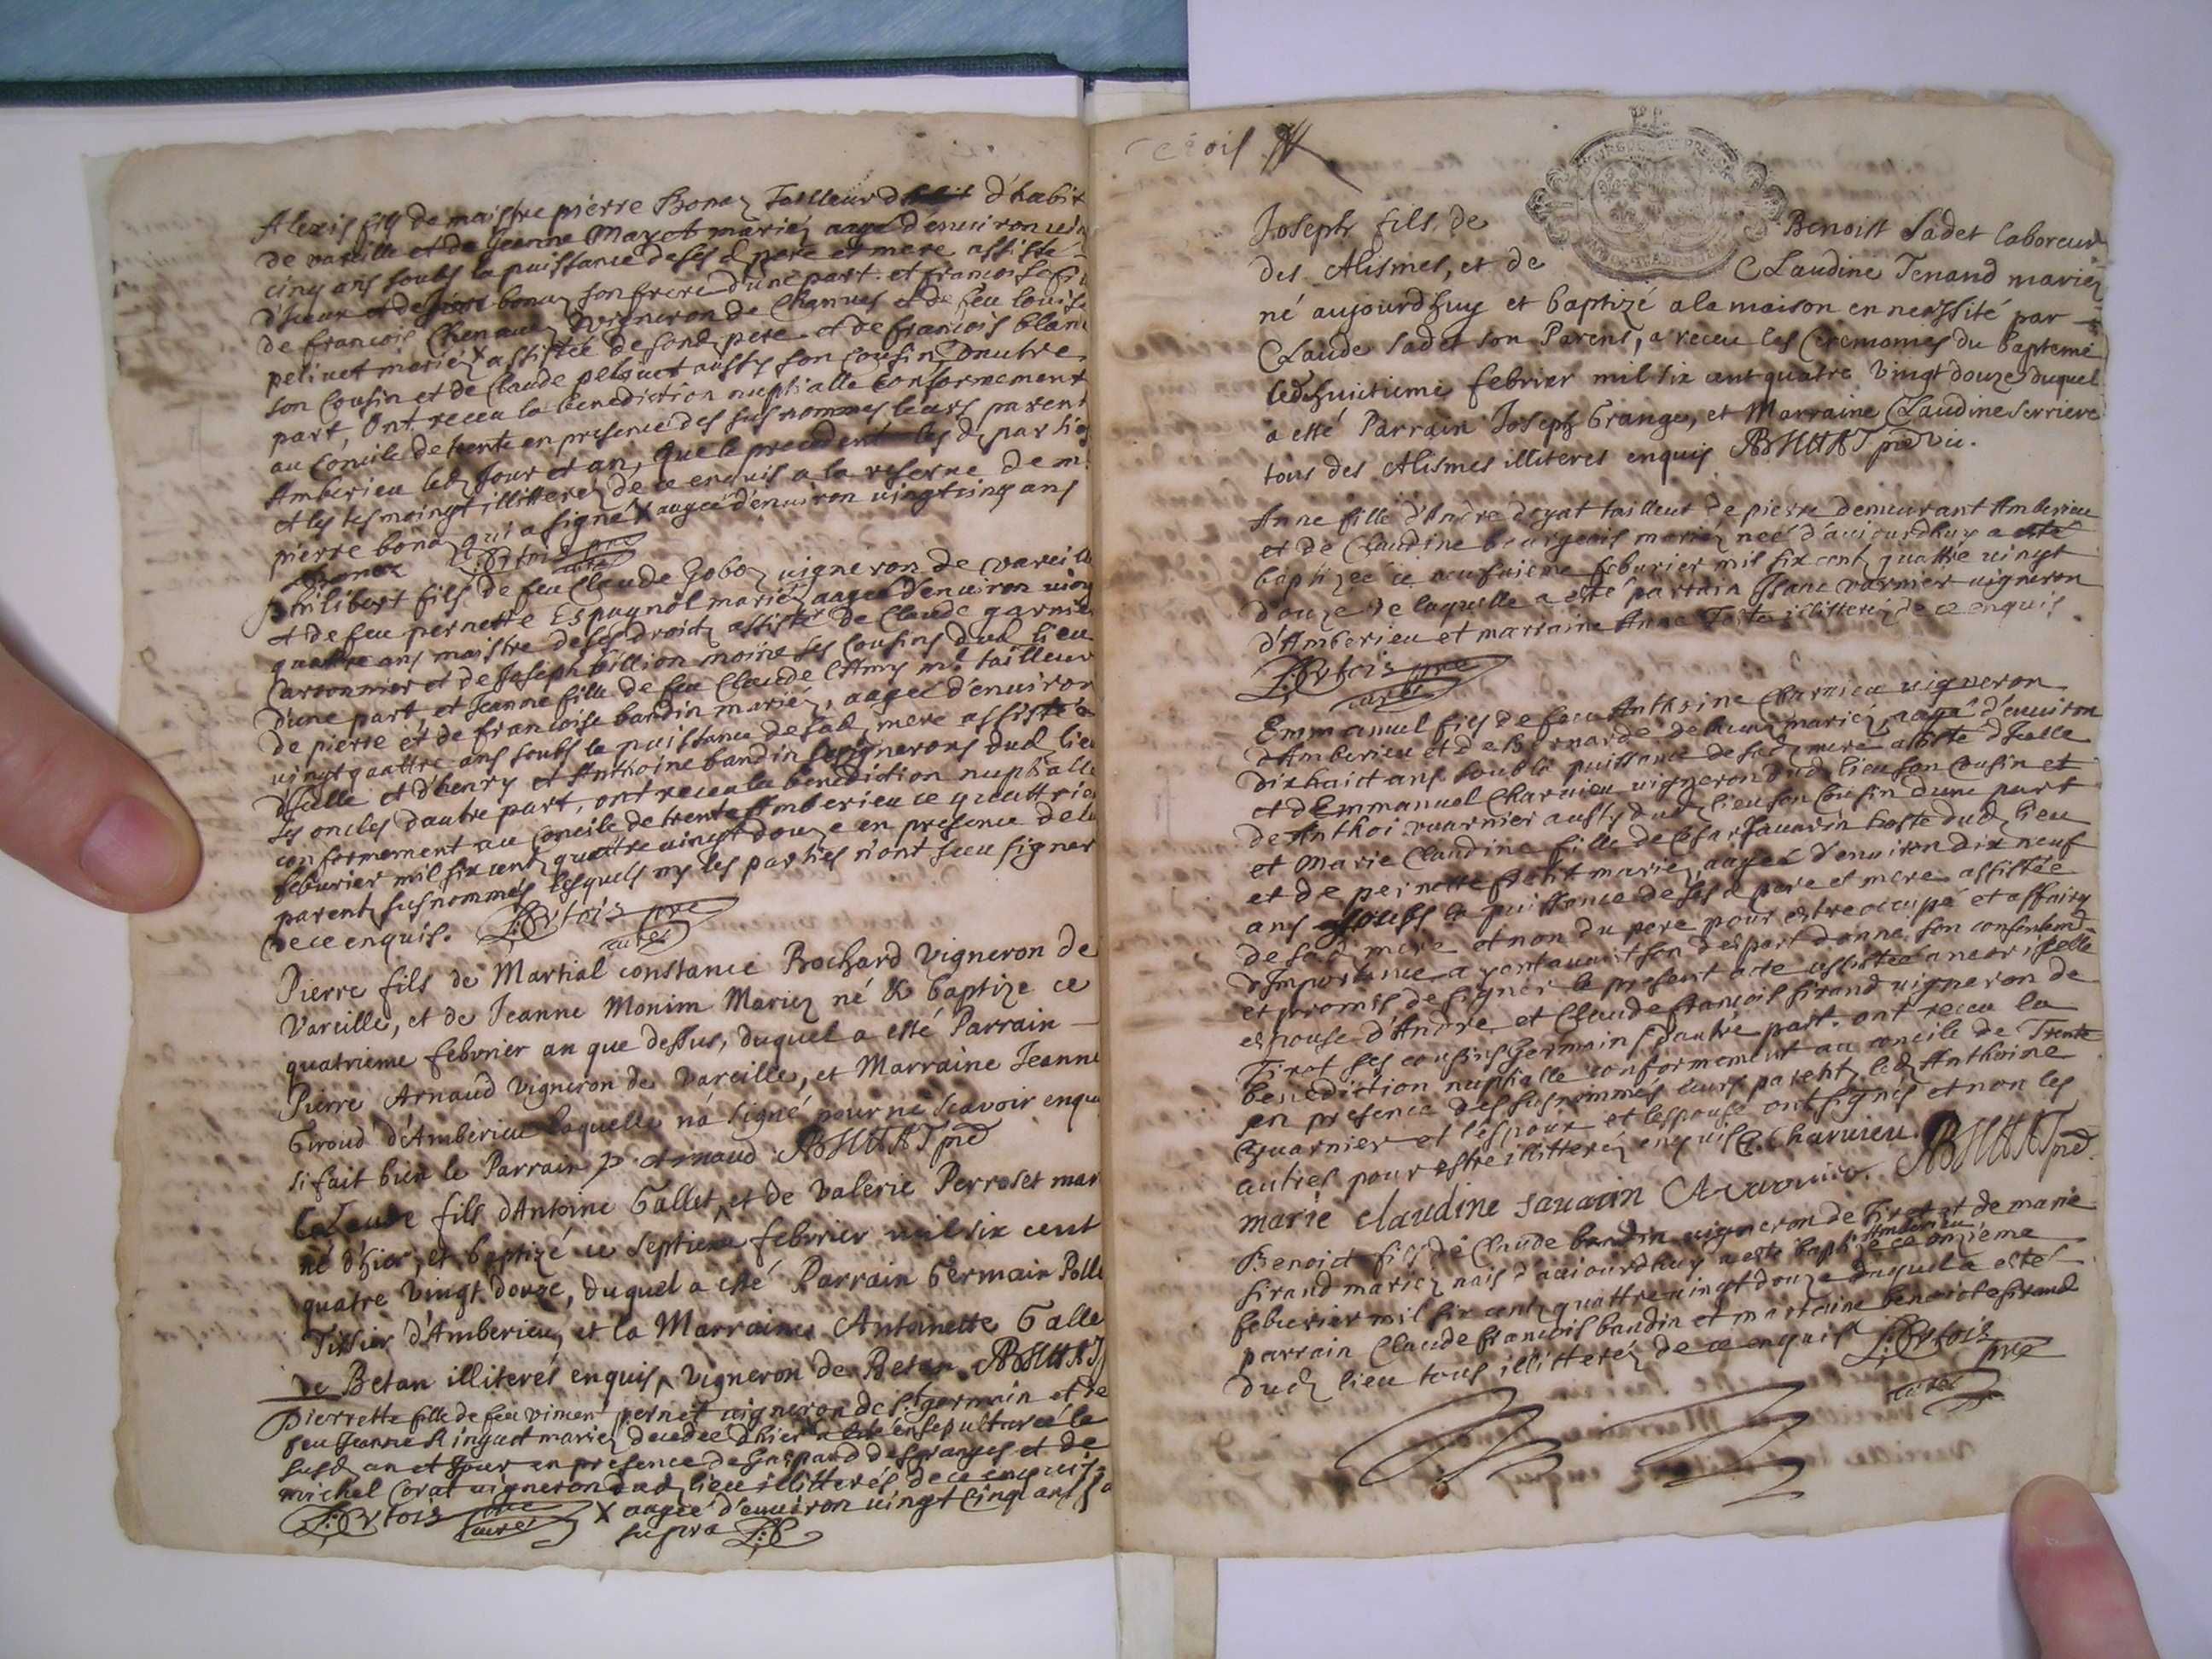 Alexis fils de maistre pierre Bonaz Tailleur d'habit
de vareille et de Jeanne Mayet mariéz aagé d'environ vin
cinq ans soubs la puissance de sesd pere et mere assisté
d'iceux et de bonaz son frere d'une part. et francoise fi
de francois Chenaue vigneron de Channes et de feu louise
pelivet mariéz X assistée de sond pere et de francois blan
son Cousin et de Claude pelivet aussy son cousin d'autre
part, Ont receu la benediction nuptialle Conformement
au Concile de trente en presence des susnommes leurs parent
Amberieu led Jour et an, que le precedent les d parties
et les tesmoingt illitteréz de ce enquis a la reserve de m.
pierre bonaz qui a signé X aagée d'environ vingt cinq ans
Bonaz
philibert fils de feu Claude Goboz vigneron de vareille
et de feu pernette Espagnol mariéz aagé d'environ ving
quattre ans maistre de ses droitz assisté de Claude garnie
Cartonnier et de Joseph billion moine ses Cousins dud lieu
d'une part, et Jeanne fille de feu Claude Chamy m.e tailleur
de pierre et de francoise bandin mariéz, aagée d'environ
vingt quattre ans soubs la puissance de sad mere assistée
d'icelle et d'henry et Anthoine bandin vignerons dud lieu
ses oncles d'autre part, ont receu la benediction nuptialle
conformement au Concile de trente Amberieu ce quattrie
feburier mil six cent quattre vingt douze en presence de le
parent susnommés lesquels ny les parties n'ont sceu signer
de ce enquis.
Pierre fils de Martial constance Bochard Vigneron de
Vareille, et de Jeanne Monim Mariez né & baptize ce
quatrieme febvrier an que dessus, duquel a esté Parrain
Pierre Arnaud vigneron de Vareille, et Marraine Jeanne
Giroud d'Amberieu laquelle n'a signé pour ne scavoir enqu
si fait bien le Parrain p. Arnaud
Claude fils d'Antoine Gallet, et de Valerie Perroset mar
né d'hier, et baptizé ce septieme febvrier mil six cent
quatre vingt douze, duquel a esté Parrain Germain Polle
Tissier d'Amberieu, et la Marraine Antoinette Galle
de Betan illiterés enquis, vigneron de Betan
pierrette fille de feu vincent pernet vigneron de St. germain et de
feu Jeanne Ringuet mariez decedée d'hier a esté ensepulturée le
susd. an et Jour en presence de Gaspard desgranges et de
michel Corat vigneron dud lieu illitterés de ce enquis
X aagée d'environ vingt cinq ans
supra
Joseph fils de Benoist Sadet laboreur
des Alismes, et de Claudine Tenand mariez
né aujourd'huy et baptizé a la maison en necessité par
Claude Sadet son Parent, a receu les Ceremonies du bapteme
led huitieme febrier mil six cent quatre vingt douze duquel
a esté Parrain Joseph Grange, et Marraine Claudine Serriere
tous des Alismes illiteres enquis
Anne fille d'André doyat tailleur de pierre demeurant Amberieu
et de Claudine bourgeois mariéz neé d'aujourdhuy a esté
baptizeé ce neufvieme feburier mil six cent quattre vingt
douze de laquelle a esté parrain Isaac warnier vigneron
d'Amberieu et marraine Anne illitteréz de ce enquis.
Emmanuel fils de feu Anthoine Charvieu vigneron
d'Amberieu et de Bernarde mariéz, aagé d'environ
dixhuict ans soubs la puissance de sad mere assisté d'icelle
et d'Emmanuel Charvieu vigneron dud. lieu son cousin et
de Anthoi. vuarnier aussy dud lieu son Cousin d'une part
et Marie Claudine fille de Cesar Sauarin hoste dud lieu
et de pernette mariéz, aagée d'environ dix neuf
ans soubs la puissance de ses d pere et mere assistée
de sad mere et non du pere pour estre occupé et affaires
d'Importance ayant avant son depart donné son consentem.t
et promis de signer le present acte assistée encor icelle
espouse d'André et Claude francois sirand vigneron de
Tiret ses cousins germain d'autre part. ont receu la
benediction nuptialle conformement au concile de Trente
en presence des susnommes leurs parentz led Anthoine
Guarnier et l'espoux et l'espouse ont signés et non les
autres pour estre illitteréz enquis. E. Charvieu
marie claudine sauarin
Benoict fils de Claude bandin vigneron de Tiret et de marie
sirand mariez nais d'aujourdhuy a esté baptizé Amberieu ce onzieme
feburier mil six cent quattre vingt douze duquel a esté
parrain Claude francois bandin et marraine benoiste sirand
dud lieu tous illitteréz de ce enquis